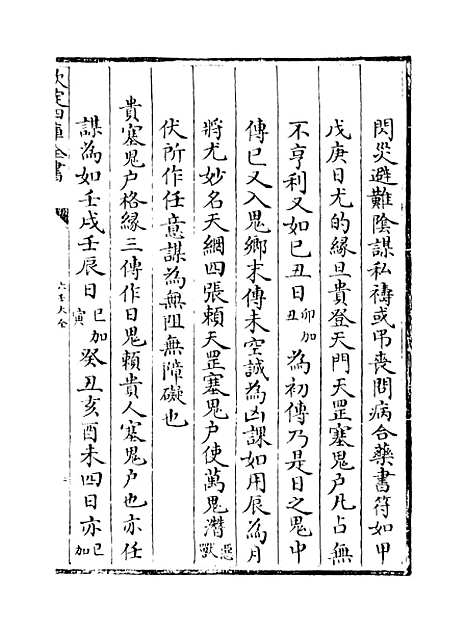 閃災避難陰謀私禱或弔喪問病合藥書符如甲
戊庚日尤的縁旦貴登天門天罡塞鬼户凡占無
不亨利又如己丑日卯加丑為初傳乃是日之鬼中
傳巳又入鬼鄉末傳未空誠為凶課如用辰為月
將尤妙名天網四張賴天罡塞鬼户使萬鬼潛
伏所作任意謀為無阻無障礙也
貴塞鬼户格縁三傳作日鬼賴貴人塞鬼户也亦任
謀為如壬戌壬辰日巳加寅癸丑亥酉未四日亦巳加
欽定四庫全書
六壬大全